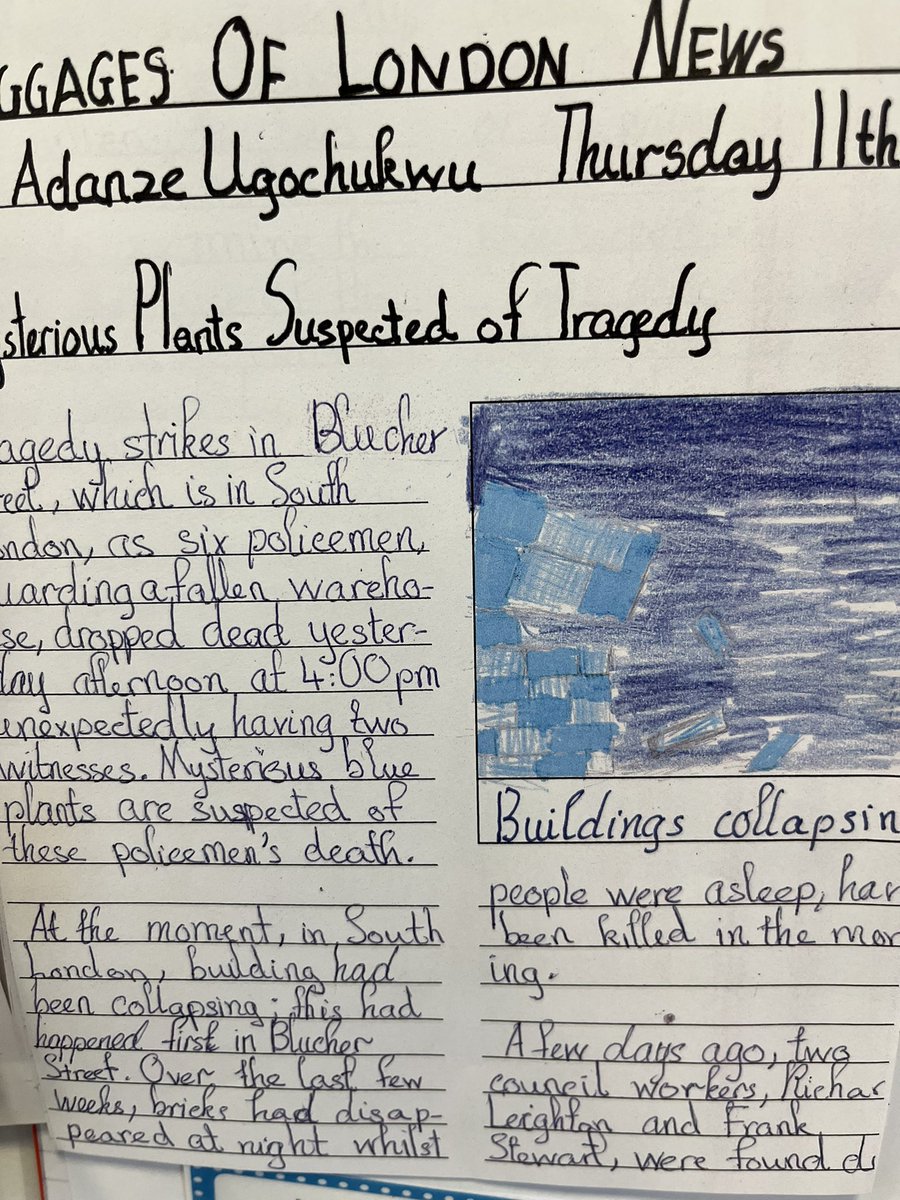 GGAGES OF LONDON NEWS
Adanze Ugochukwu Thursday 11th
sterious Plants Suspected of Tragedy
agedy strikes in Blucher
reet, which is in South
ondon, as six policemen,
uarding a fallen wareho-
se, dropped dead yester-
day afternoon at 4:00pm
unexpectedly having two
witnesses. Mysterious blue
plants are suspected of
these policemen's death.
At the moment, in South
London, building had
been collapsing; this had
happened first in Blucher
Street. Over the last few
weeks, bricks had disap-
peared at night whilst
Buildings collapsin
people were asleep, hav
been killed in the mor
ing.
A few days ago, two
council workers, Richar
Leighton and Frank
Stewart, were found d